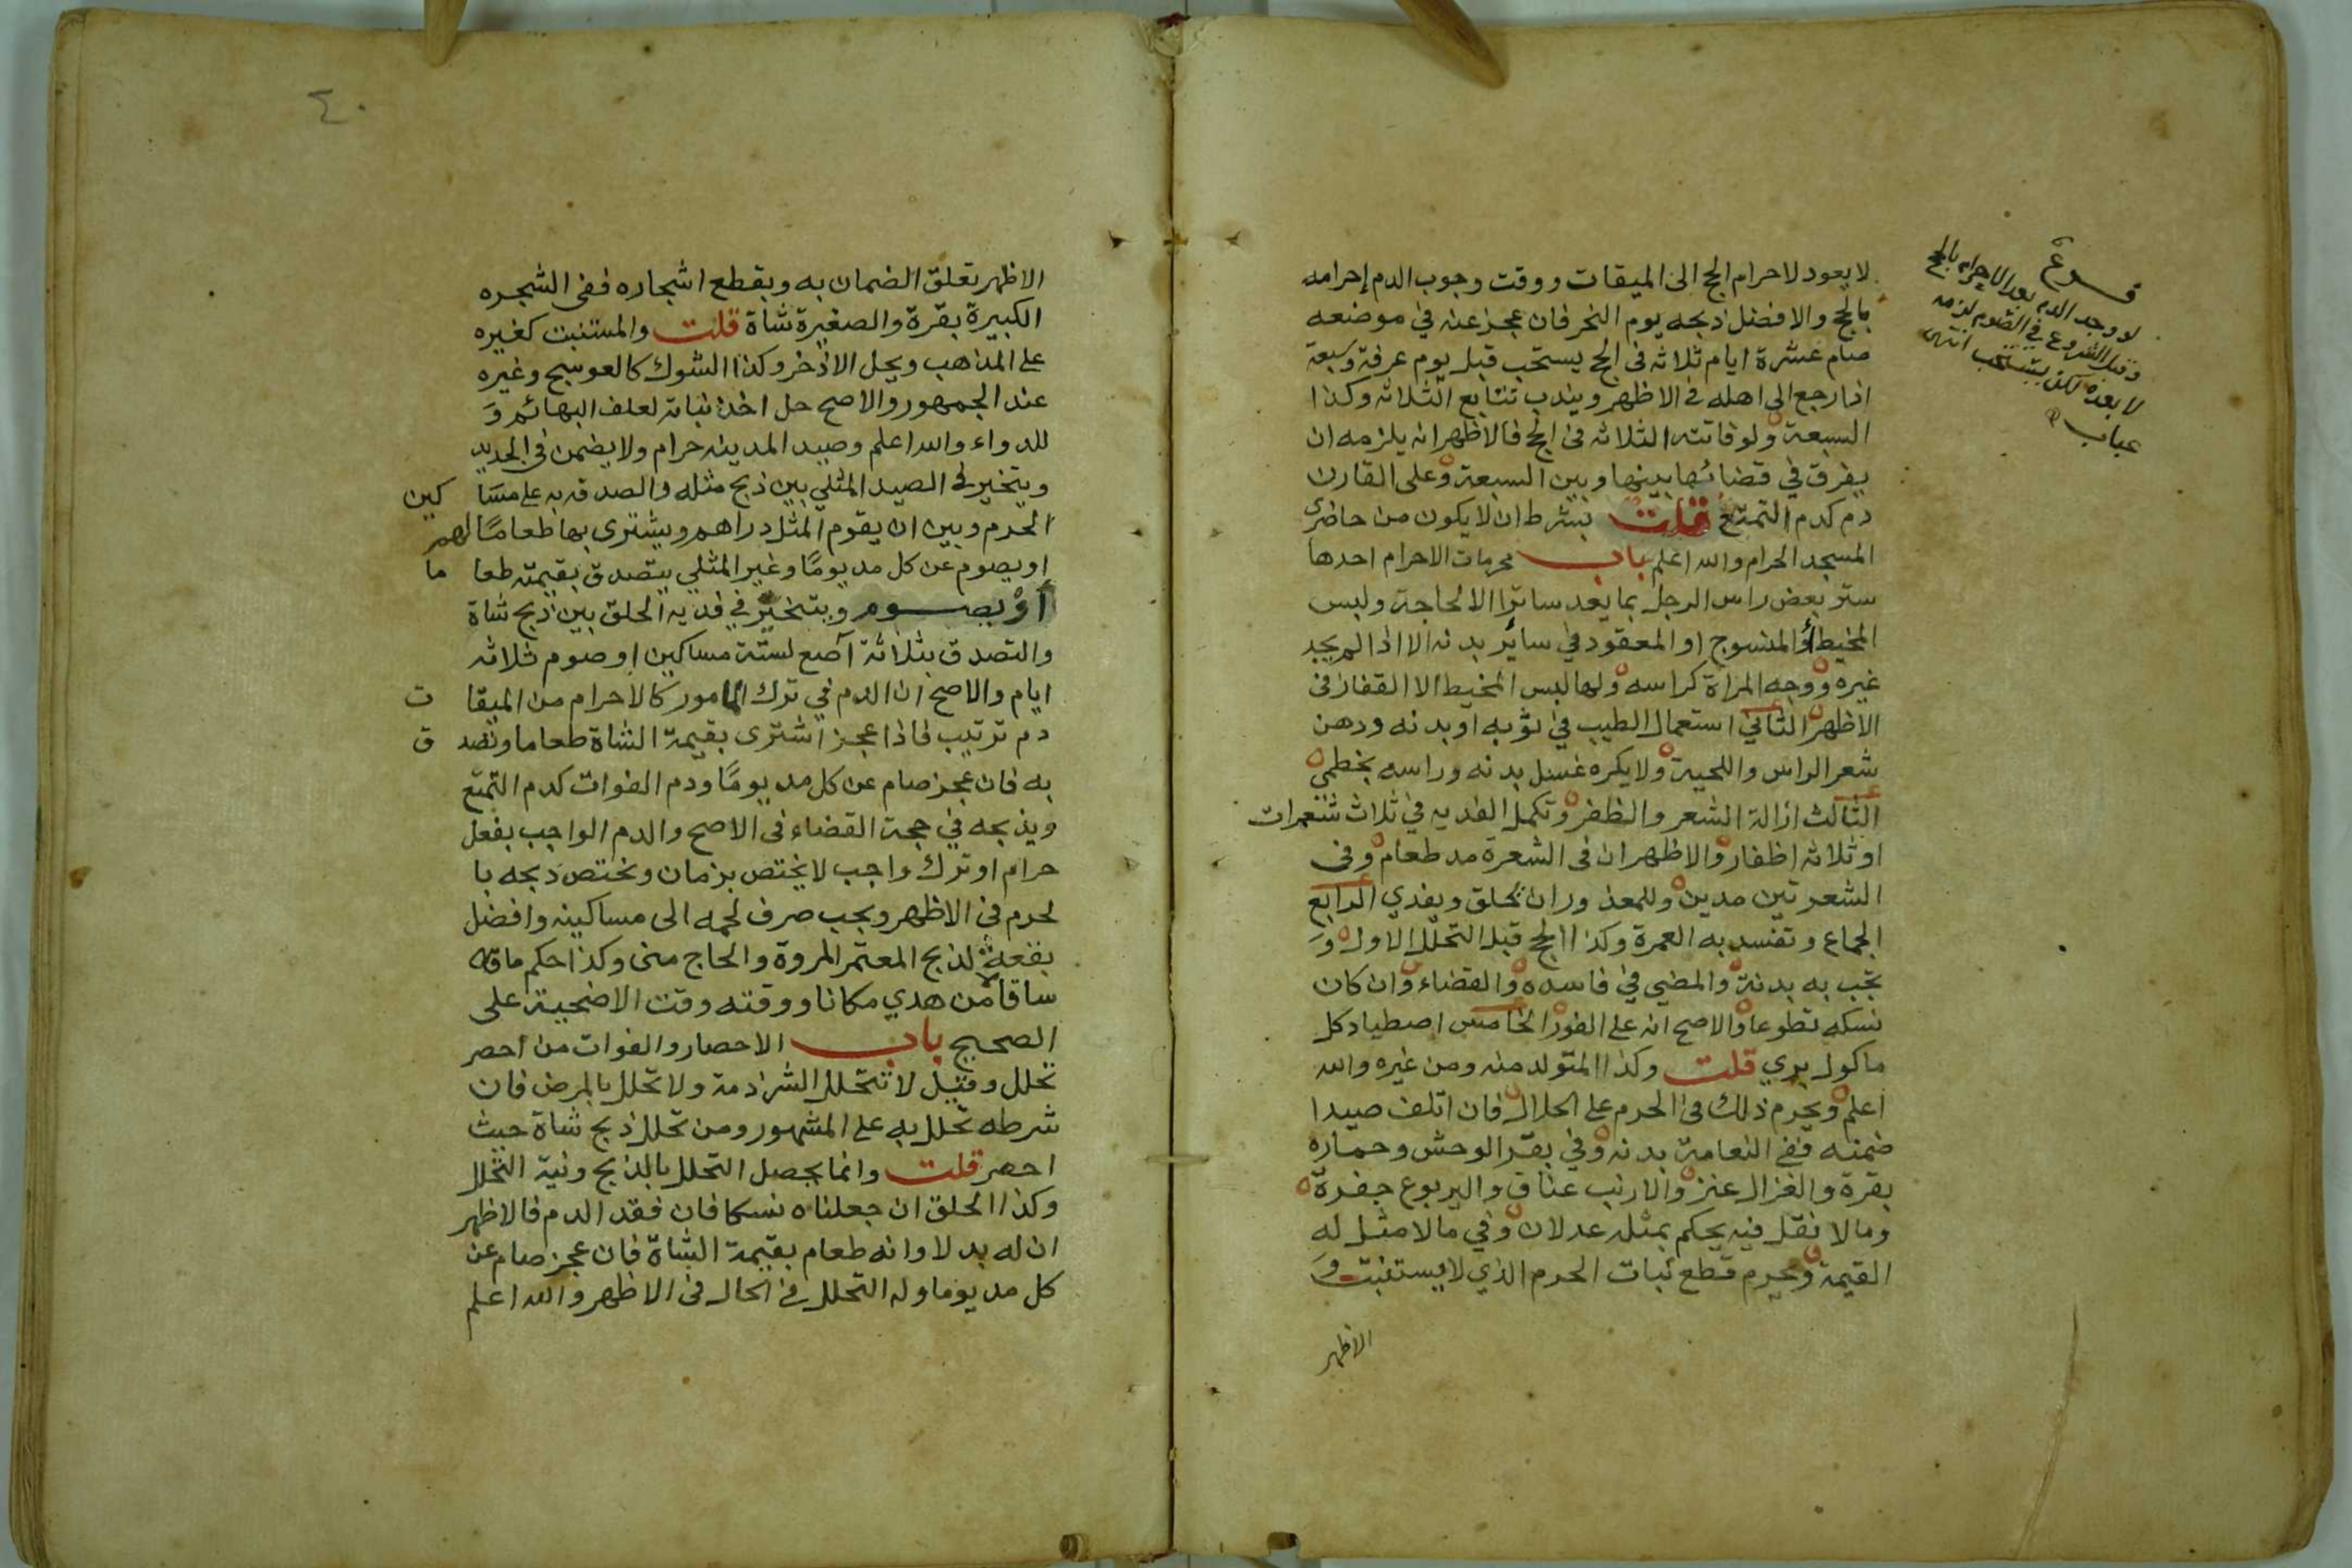 لا يعود لاحرام الحج الى الميقات ووقت وجوب الدم إحرامه
بالحج والافضل ذبحه يوم النحر فان عجز عنه في موضعه
صام عشرة ايام ثلاثه فى الحج يستحب قبل يوم عرفة وسبعة
اذا رجع الى اهله فى الاظهر ويندب تتابع الثلاثه وكذا
السبعة ولو فاتته الثلاثه فى الحج فالاظهر انه يلزمه ان
يفرق في قضائها بينها وبين السبعة وعلى القارن
دم كدم التمتع قلت بشرط ان لا يكون من حاضرى
المسجد الحرام والله اعلم باب محرمات الاحرام احدها
ستر بعض راس الرجل بما يعد ساترا الا لحاجة ولبس
المخيط أو المنسوج او المعقود في سائر بدنه الا اذا لم يجد
غيره ووجه المراة كراسه ولها لبس المخيط الا القفاز فى
الاظهر الثاني استعمال الطيب في ثوبه او بدنه ودهن
شعر الراس واللحية ولا يكره غسل بدنه وراسه بخطمي
الثالث ازالة الشعر والظفر وتكمل الفديه في ثلاث شعرات
او ثلاثه اظفار والاظهر ان فى الشعرة مد طعام وفى
الشعرتين مدين وللمعذور ان يحلق ويفدي الرابع
الجماع وتفسد به العمرة وكذا الحج قبل التحلل الاول وَ
تجب به بدنة والمضي في فاسده والقضاء وان كان
نسكه تطوعا والاصح انه على الفور الخامس اصطياد كل
ماكول بري قلت وكذا المتولد منه ومن غيره والله
اعلم ويحرم ذلك فى الحرم على الحلال فان اتلف صيدا
ضمنه ففى النعامة بدنه وفي بقر الوحش وحماره
بقرة والغزال عنز والارنب عناق واليربوع جفرة
ومالا نقل فيه يحكم بمثله عدلان وفي مالا مثل له
القيمة ويحرم قطع نبات الحرم الذي لا يستنبت وَ
الاظهر
فرع
لو وجد الدم بعد الاحرام بالحج
وقبل الشروع في الصوم لزمه
لا بعده لكن يستحب انتهى
عباب
٤٠
الاظهر تعلق الضمان به وبقطع اشجاره ففى الشجره
الكبيرة بقرة والصغيرة شاة قلت والمستنبت كغيره
على المذهب ويحل الاذخر وكذا الشوك كالعوسج وغيره
عند الجمهور والاصح حل اخذ نباته لعلف البهائم وَ
للدواء والله اعلم وصيد المدينه حرام ولا يضمن فى الجديد
ويتخير فى الصيد المثلي بين ذبح مثله والصدقه به على مسا كين
الحرم وبين ان يقوم المثل دراهم ويشترى بها طعامًا لهم
او يصوم عن كل مد يومًا وغير المثلي يتصدق بقيمته طعا ما
أوْ يصوم ويتخير في فديه الحلق بين ذبح شاة
والتصدق بثلاثة آصع لستة مساكين او صوم ثلاثه
ايام والاصح ان الدم في ترك المامور كالاحرام من الميقا ت
دم ترتيب فاذا عجز اشترى بقيمة الشاة طعاما وتصد ق
به فان عجز صام عن كل مد يومًا ودم الفوات كدم التمتع
ويذبحه في حجة القضاء فى الاصح والدم الواجب بفعل
حرام او ترك واجب لا يختص بزمان ويختص ذبحه با
لحرم فى الاظهر ويجب صرف لحمه الى مساكينه وافضل
بقعة لذبح المعتمر المروة والحاج منى وكذا حكم ما
ساقا من هدي مكانا ووقته وقت الاضحية على
الصحيح باب الاحصار والفوات من احصر
تحلل وقيل لا تتحلل الشرذمة ولا تحلل بالمرض فان
شرطه تحلل به على المشهور ومن تحلل ذبح شاة حيث
احصر قلت وانما يحصل التحلل بالذبح ونية التحلل
وكذا الحلق ان جعلناه نسكا فان فقد الدم فالاظهر
ان له بدلا وانه طعام بقيمة الشاة فان عجز صام عن
كل مد يوما وله التحلل فى الحال فى الاظهر والله اعلم